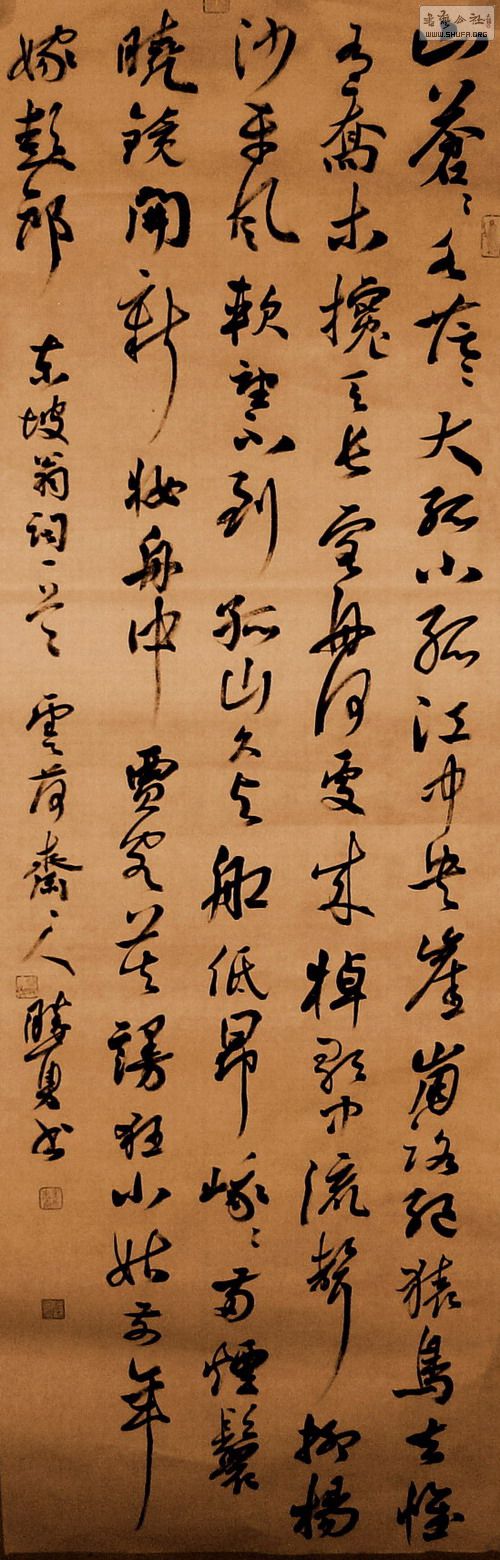 書法公社
WWW.SHUFA.ORG
山蒼々水茫々大孤小孤江中央崖崩路絕猿鳥去惟
有喬木攙天長客舟何處來棹歌中流聲抑揚
沙平風軟望不到孤山久與船低昂峨々兩煙鬟
曉鏡開新妝舟中賈客莫謾狂小姑前年
嫁彭郎 東坡翁詞一首 雲荷齋主人 書